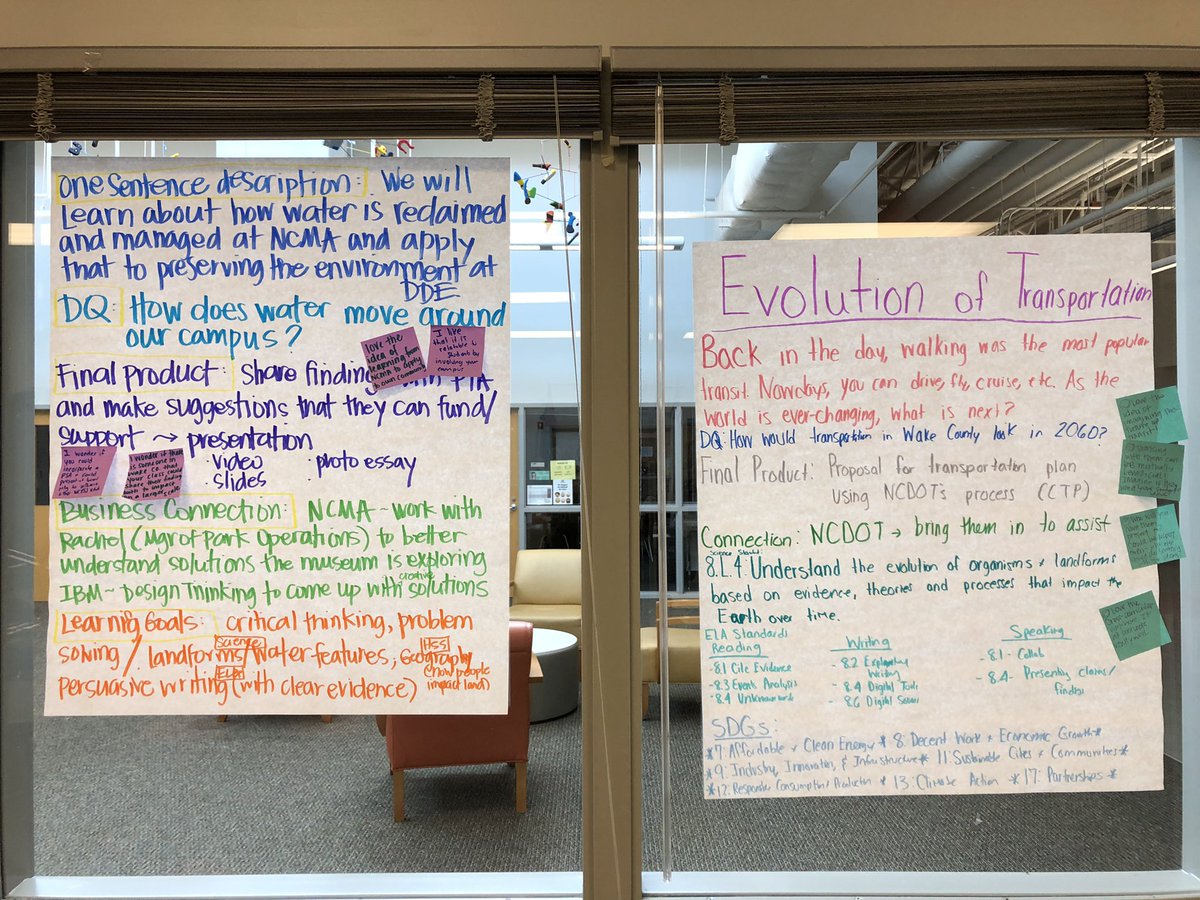 one sentence description: We will
Learn about how water is reclaimed
and managed at NCMA and apply
that to preserving the environment at
DDE
DQ: How does water move around
our campus?
Love the
idea of
learning from
NCMA to apply
to own
I like
that it is
relatable to
students by
involving your
campus
Final product: Share finding PTA
and make suggestions that they can fund/
support → presentation
· video · photo essay
slides
I wonder if
you could
incorporate a
PSA
I wonder if there
is someone in
wake co. that
your class could
share their finding
with to impact
a larger scale
Business Connection: NCMA ~ work with
Rachel (Mgr of Park Operations) to better
understand solutions the museum is exploring
IBM ~ Design Thinking to come up with creative solutions
Learning Goals: critical thinking, problem
solving / landforms / water features, Geography
Science HSS
(how people
impact land)
ELA
persuasive writing (with clear evidence)
Evolution of Transportation
Back in the day, walking was the most popular
transit. Nowdays, you can drive, fly, cruise, etc. As the
world is ever-changing, what is next?
DQ: How would transportation in Wake County look in 2060?
Final Product: Proposal for transportation plan
using NCDOT's process (CTP)
Connection: NCDOT → bring them in to assist
8.L.4: Understand the evolution of organisms & landforms
based on evidence, theories and processes that impact the
Earth over time.
ELA Standards
Reading
- 8.1 Cite Evidence
- 8.3 Event Analysis
- 8.4
Writing
- 8.2 Explanatory
Writing
- 8.4 Digital Tools
- 8.6 Digital
Speaking
- 8.1 - Collab
- 8.4 - Presenting claims/
findings
I love the
idea of
SDGs:
*7: Affordable & Clean Energy * 8: Decent Work & Economic Growth *
*9: Industry, Innovation, & Infrastructure * 11: Sustainable Cities & Communities *
*12: Responsible Consumption/Production * 13: Climate Action * 17: Partnerships *